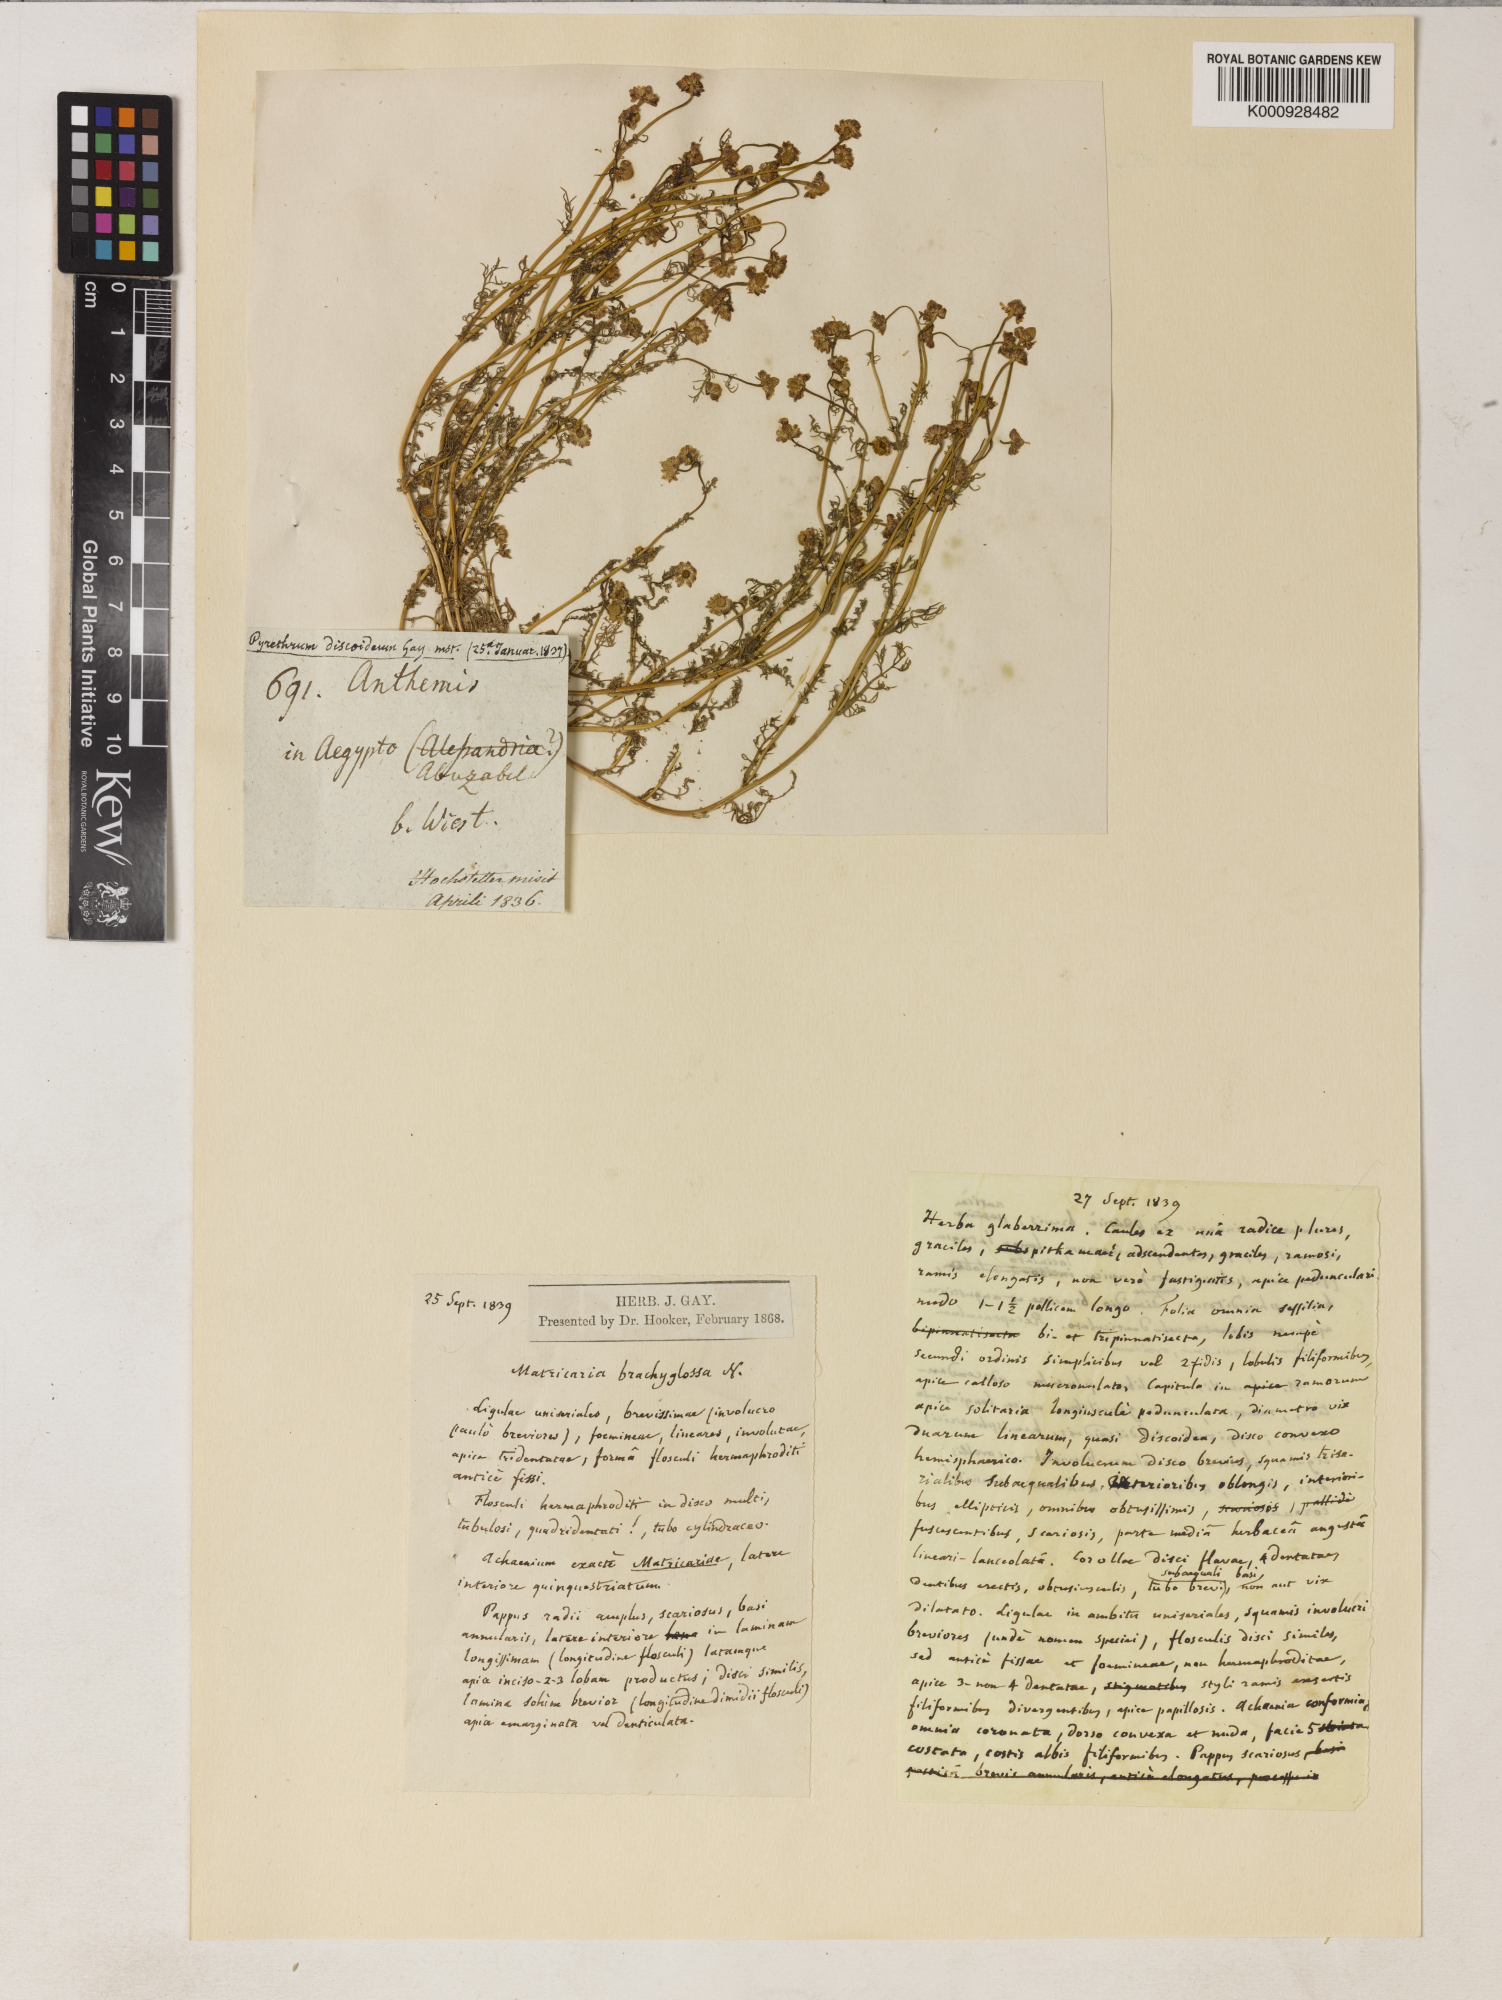 ROYAL BOTANIC GARDENS KEW
K000928482
cm
0 1 2 3 4 5 6 7 8 9 10
Global Plants Initiative
Kew
ROYAL BOTANIC GARDENS
Pyrethrum discoideum Gay mst. (25a Januar. 1837)
691. Anthemis
in Aegypto (Alexandria?)
Abuzabel
b. Wiest.
Hochstetter misit
Aprili 1836.
25 Sept. 1839
HERB. J. GAY.
Presented by Dr. Hooker, February 1868.
Matricaria brachyglossa N.
Ligulae uniseriales, brevissimae (involucro
paulò breviores), foemineae, lineares, involutae,
apice tridentatae, formâ flosculi hermaphroditi
anticè fissi.
Flosculi hermaphroditi in disco multi,
tubulosi, quadridentati!, tubo cylindraceo.
Achaenium exactè Matricariae, latere
interiore quinquestriatum.
Pappus radii amplus, scariosus, basi
annularis, latere interiore in laminam
longissimam (longitudine flosculi) latamque
apice inciso-2-3 lobam productus; disci similis,
lamina solùm brevior (longitudine dimidii flosculi)
apice emarginata vel denticulata.
27 Sept. 1839
Herba glaberrima. Caules ex unâ radice plures,
graciles, spithamaei, adscendentes, graciles, ramosi,
ramis elongatis, non verò fastigiatis, apice pedunculari
nudo 1-1½ pollicem longo. Folia omnia sessilia,
bipinnatisecta bi- et tripinnatisecta, lobis nempè
secundi ordinis simplicibus vel 2fidis, lobulis filiformibus,
apice calloso mucronulato, Capitula in apice ramorum
apice solitaria longiusculè pedunculata, diametro vix
duarum linearum, quasi discoidea, disco convexo
hemisphaerico. Involucrum disco brevius, squamis trise-
rialibus subaequalibus, exterioribus oblongis, interiori-
bus ellipticis, omnibus obtusissimis, scariosis, pallidè
fuscescentibus, scariosis, parte mediâ herbaceâ angustâ
lineari-lanceolatâ. Corollae disci flavae, 4 dentatae,
dentibus erectis, obtusiusculis, tubo brevi, subaequali basi, non aut vix
dilatato. Ligulae in ambitu uniseriales, squamis involucri
breviores (undè nomen speciei), flosculis disci similes,
sed anticè fissae et foemineae, non hermaphroditae,
apice 3- non 4 dentatae, stigmatibus styli ramis exsertis
filiformibus divergentibus, apice papillosis. Achaenia conformia,
omnia coronata, dorso convexa et nuda, facie 5 striata
costata, costis albis filiformibus. Pappus scariosus, basi
posticâ brevis annularis, anticè elongatus,